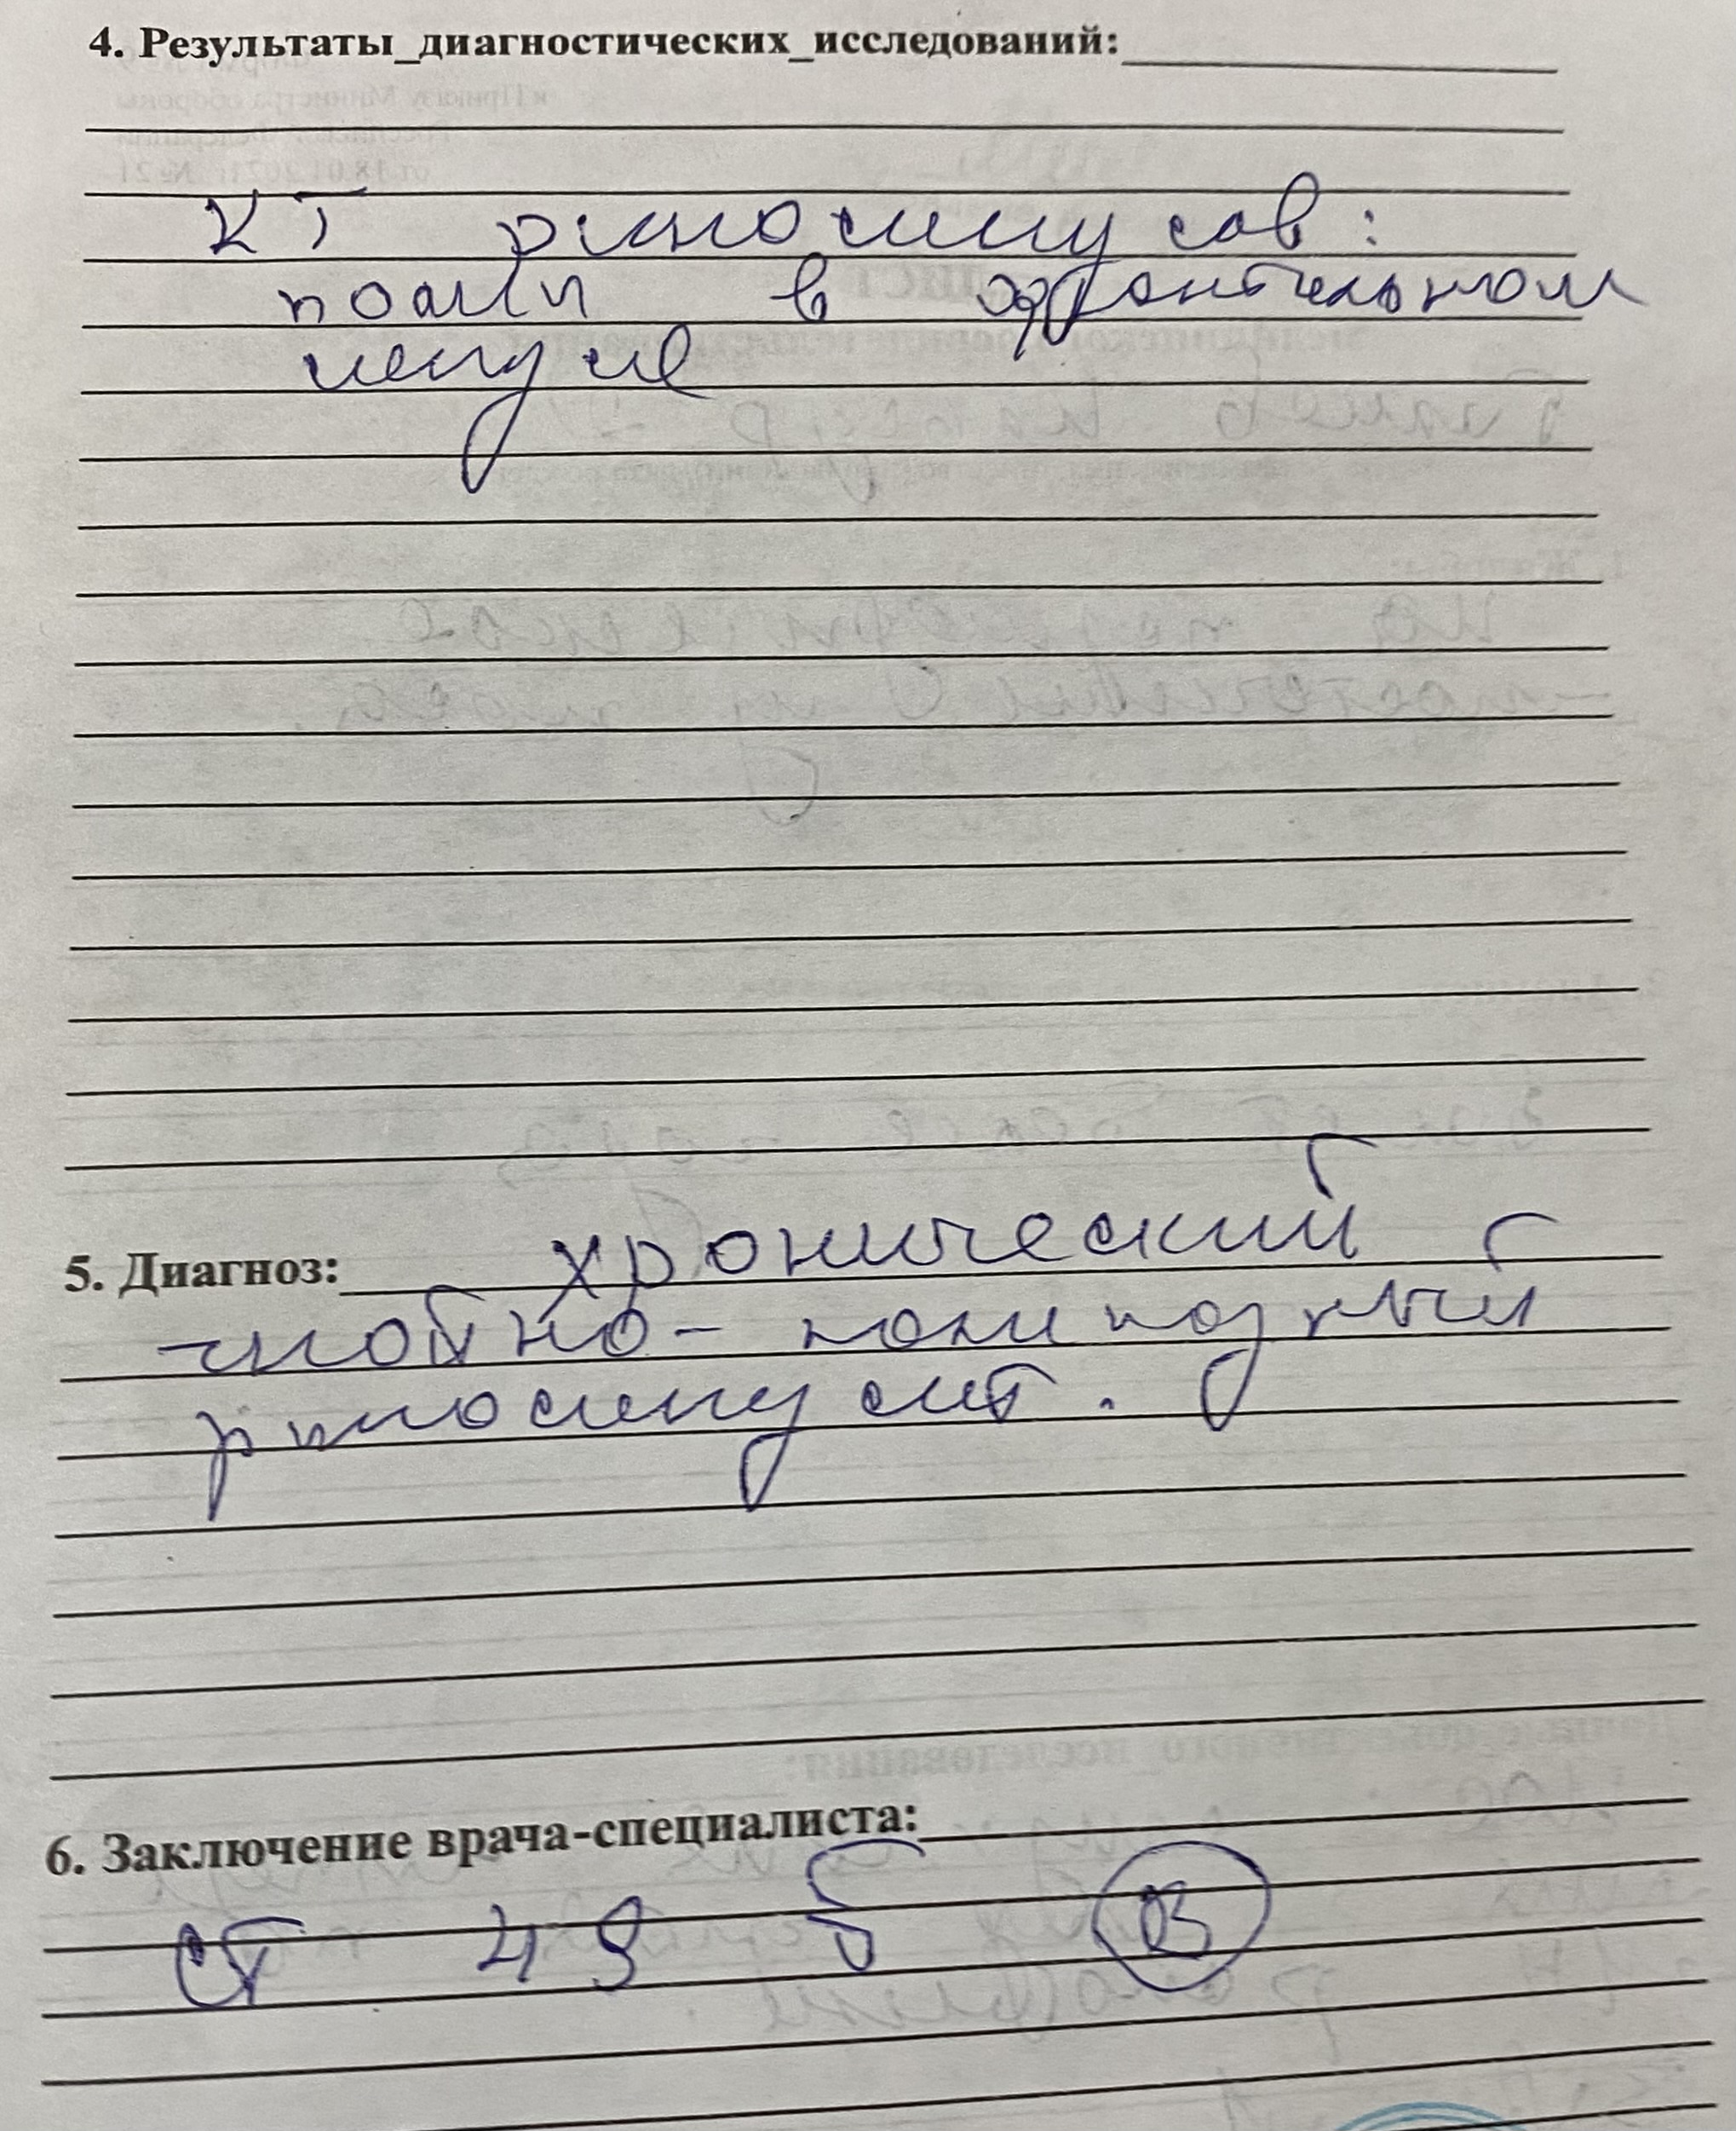 4. Результаты_диагностических_исследований:
КТ риносинусов:
полип в фронтальном
синусе
5. Диагноз: хронический
гнойно-полипозный
риносинусит.
6. Заключение врача-специалиста:
ст 49 б В